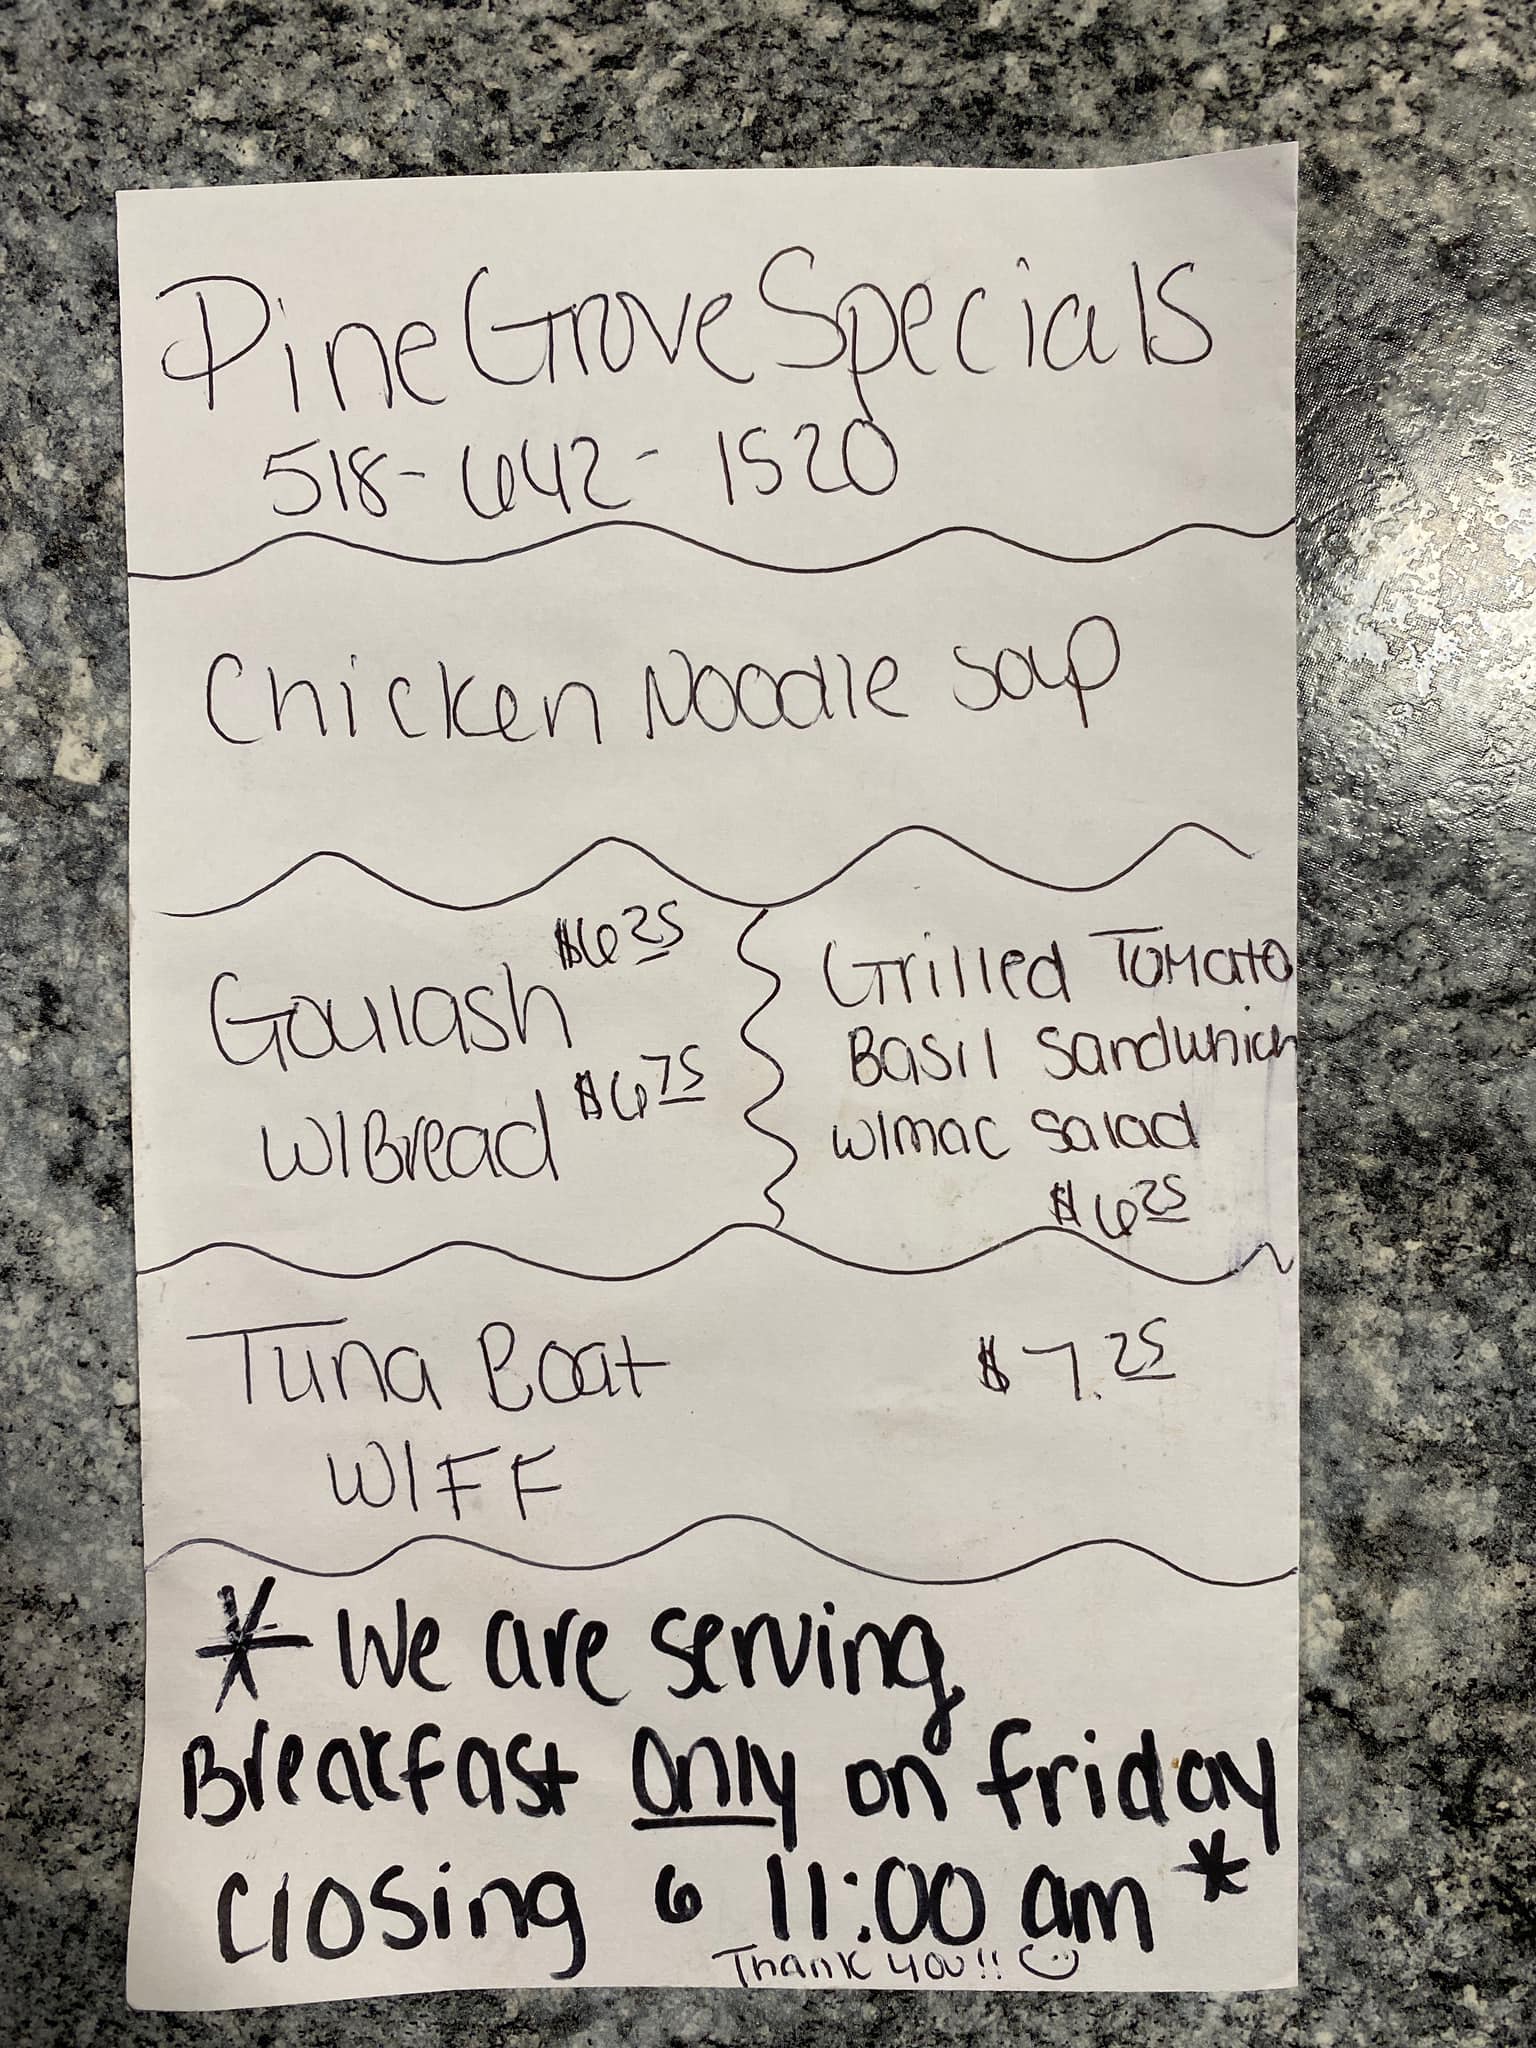 Pine Grove Specials
518-642-1520
Chicken Noodle Soup
$6.25
Goulash
$6.75
W/Bread
Grilled Tomato
Basil Sandwhich
w/mac salad
$6.25
Tuna Boat $7.25
W/FF
* We are serving
Breakfast Only on friday
Closing @ 11:00 am *
Thank you!!